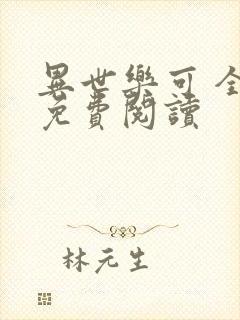 異世樂可 全
免費閱讀
林元生